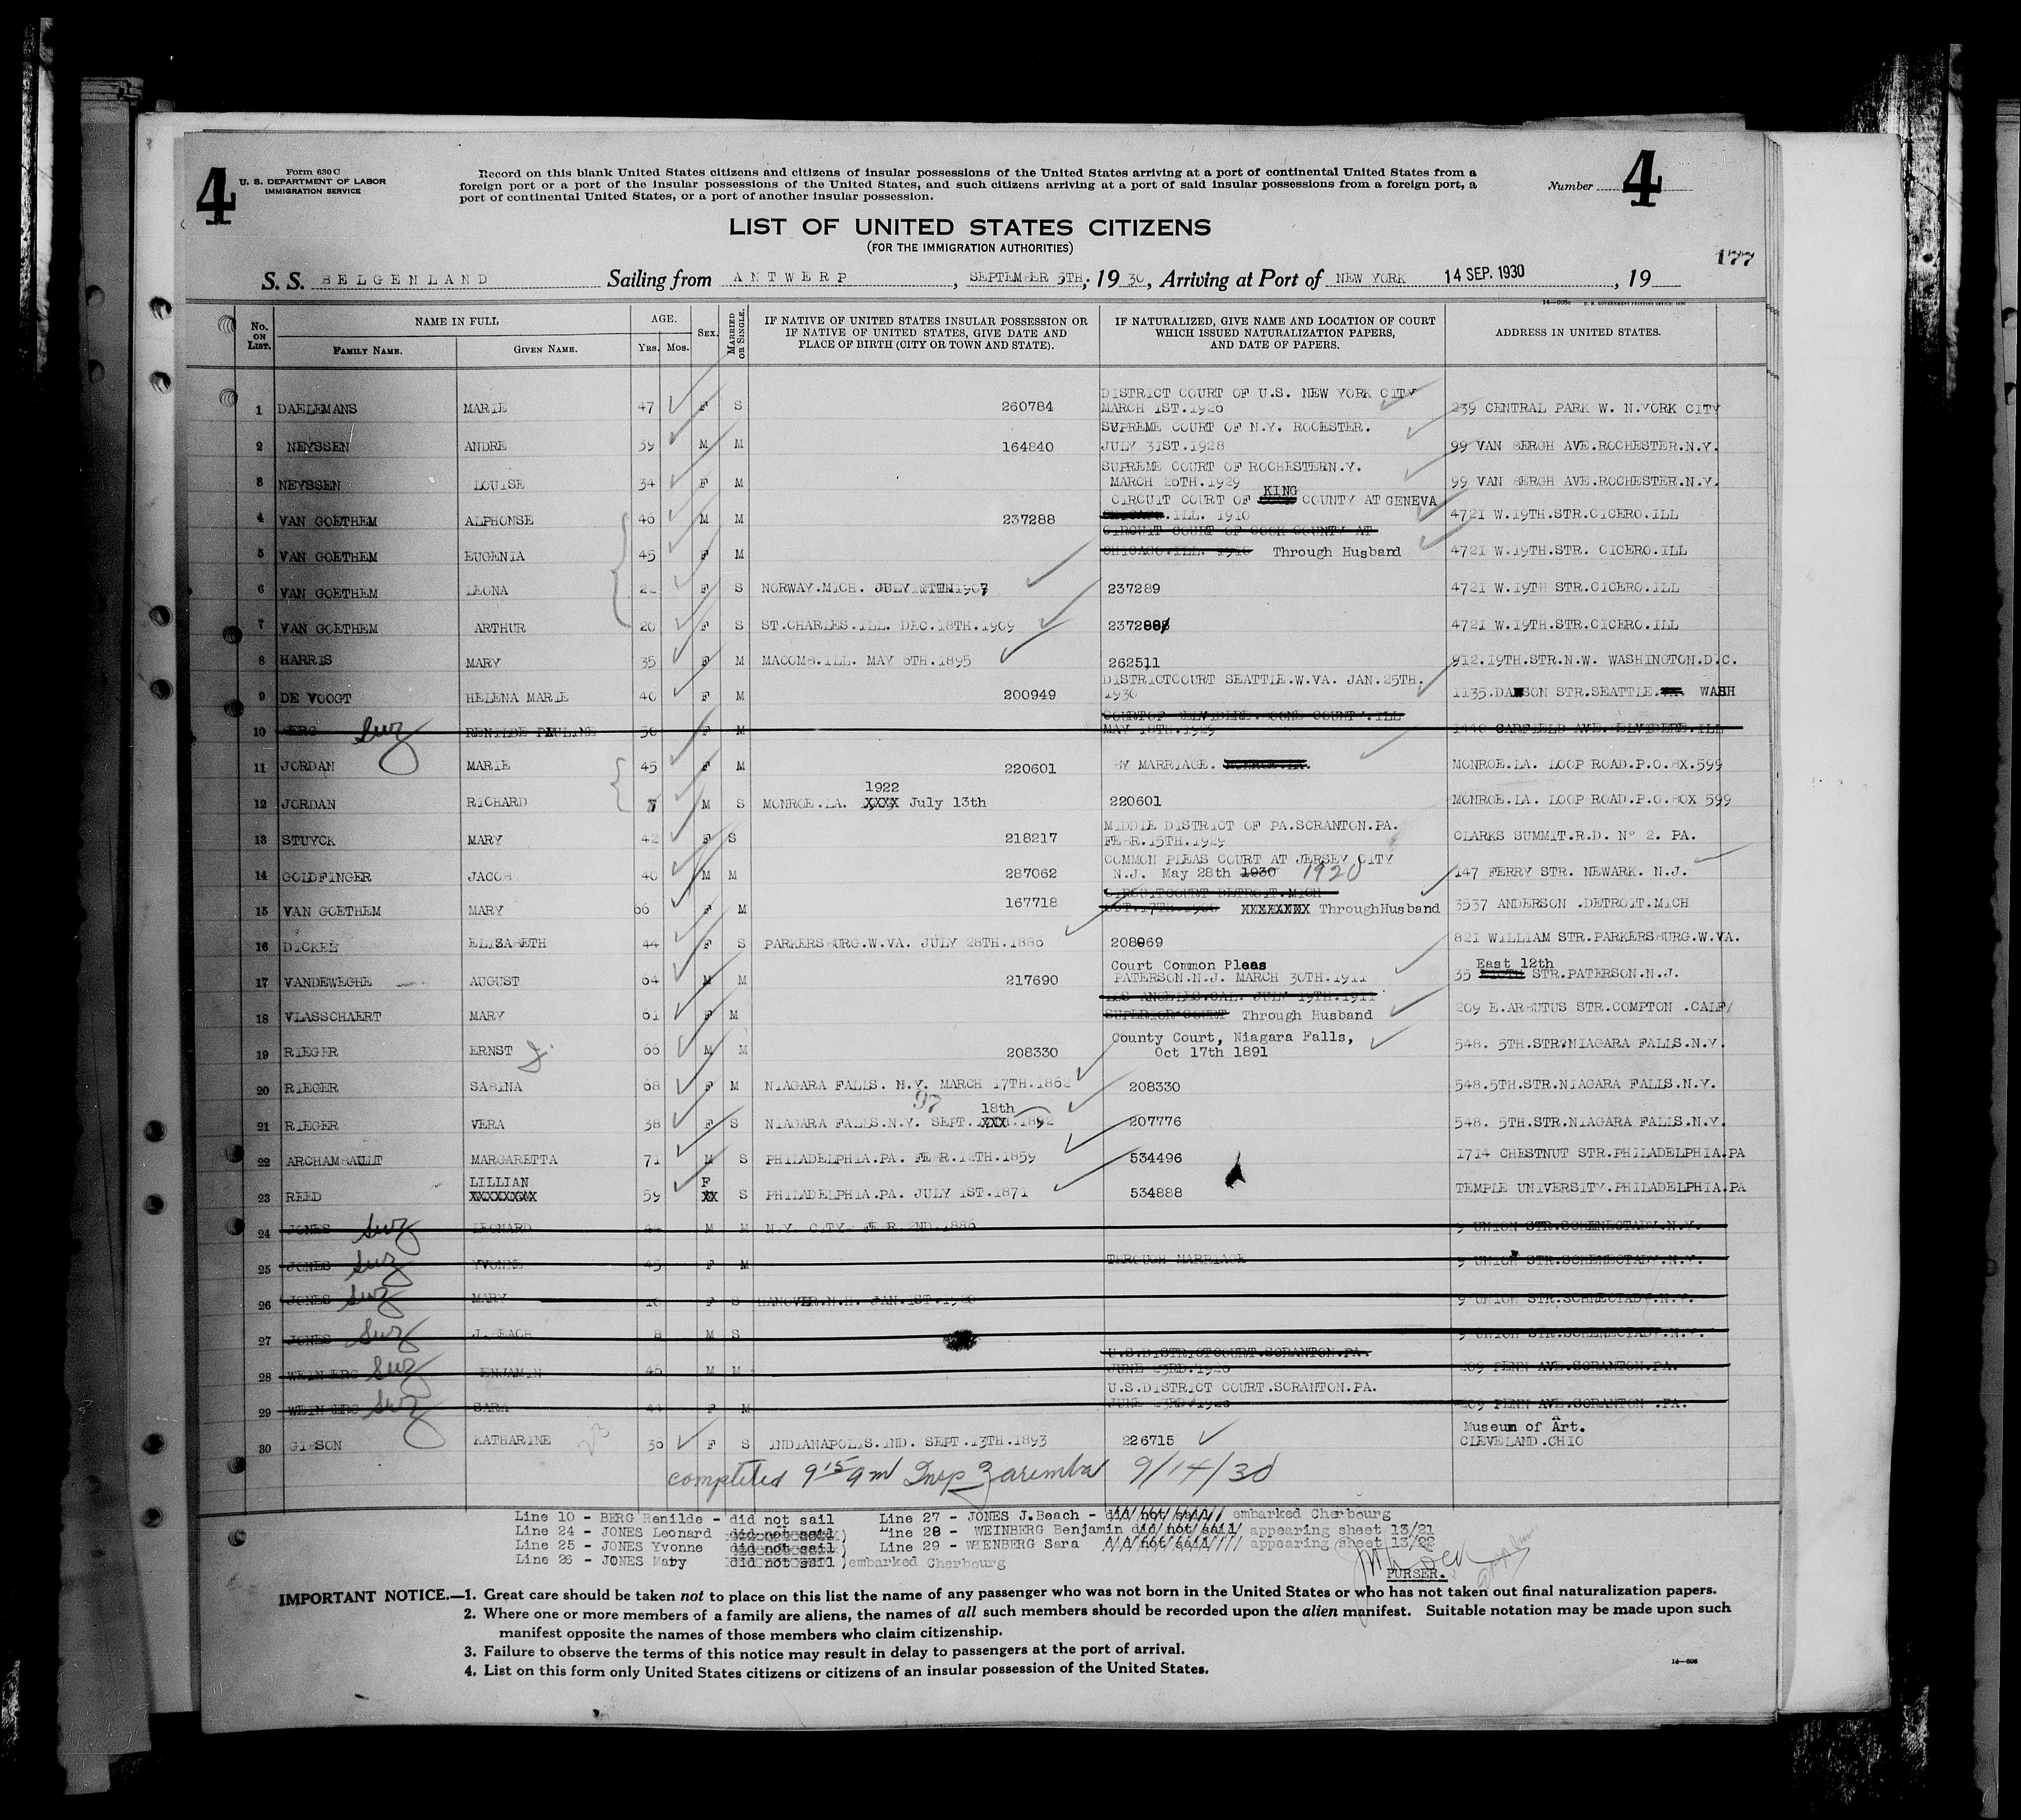 4
Form 630 C
U. S. DEPARTMENT OF LABOR
IMMIGRATION SERVICE
Record on this blank United States citizens and citizens of insular possessions of the United States arriving at a port of continental United States from a
foreign port or a port of the insular possessions of the United States, and such citizens arriving at a port of said insular possessions from a foreign port, a
port of continental United States, or a port of another insular possession.
Number 4
LIST OF UNITED STATES CITIZENS
(FOR THE IMMIGRATION AUTHORITIES)
177
S. S. BELGENLAND Sailing from ANTWERP, SEPTEMBER 5TH, 1930, Arriving at Port of NEW YORK 14 SEP. 1930, 19
No. ON LIST. NAME IN FULL AGE. Sex. MARRIED OR SINGLE. IF NATIVE OF UNITED STATES INSULAR POSSESSION OR IF NATIVE OF UNITED STATES, GIVE DATE AND PLACE OF BIRTH (CITY OR TOWN AND STATE). IF NATURALIZED, GIVE NAME AND LOCATION OF COURT WHICH ISSUED NATURALIZATION PAPERS, AND DATE OF PAPERS. ADDRESS IN UNITED STATES.
FAMILY NAME. GIVEN NAME. Yrs. Mos.
DISTRICT COURT OF U.S. NEW YORK CITY
1 DAELEMANS MARIE 47 F S 260784 MARCH 1ST.1926 239 CENTRAL PARK W. N.YORK CITY
SUPREME COURT OF N.Y. ROCESTER.
2 NEYSSEN ANDRE 39 M M 164840 JULY 31ST.1928 99 VAN BERGH AVE.ROCHESTER.N.Y.
SUPREME COURT OF ROCHESTERN.Y.
3 NEYSSEN LOUISE 34 F M MARCH 26TH.1929 99 VAN BERGH AVE.ROCHESTER.N.Y.
CIRCUIT COURT OF KING COUNTY AT GENEVA
4 VAN GOETHEM ALPHONSE 46 M M 237288 CHICAGO.ILL. 1910 4721 W.19TH.STR.CICERO.ILL
CIRCUIT COURT OF COOK COUNTY AT
5 VAN GOETHEM EUGENIA 45 F M CHICAGO.ILL. 1910 Through Husband 4721 W.19TH.STR. CICERO.ILL
6 VAN GOETHEM LEONA 22 F S NORWAY.MICH. JULY 1907 237289 4721 W.19TH STR.CICERO.ILL
7 VAN GOETHEM ARTHUR 20 F S ST.CHARLES.ILL. DEC.18TH.1909 237288 4721 W.19TH.STR.CICERO.ILL
8 HARRIS MARY 35 F M MACOMB.ILL. MAY 6TH.1895 262511 912.19TH.STR.N.W. WASHINGTON.D.C.
DISTRICTCOURT SEATTLE.W.VA. JAN.25TH.
9 DE VOOGT HELENA MARIE 40 F M 200949 1930 1135.DAWSON STR.SEATTLE. WASH
COURTOF BELVIDERE.BOONE COUNTY.ILL
10 BERG RENILDE PAULINE 50 F M MAY 18TH.1929 1440 GARFIELD AVE.BELVIDERE.ILL
11 JORDAN MARIE 45 F M 220601 BY MARRIAGE. MONROE.LA. MONROE.LA. LOOP ROAD.P.O.BX.599
1922
12 JORDAN RICHARD 7 M S MONROE.LA. XXXX July 13th 220601 MONROE.LA. LOOP ROAD.P.O.BOX 599
MIDDLE DISTRICT OF PA.SCRANTON.PA.
13 STUYCK MARY 42 F S 218217 FEBR.15TH.1929 CLARKS SUMMIT.R.D. No 2. PA.
COMMON PLEAS COURT AT JERSEY CITY
14 GOLDFINGER JACOB 40 M M 287062 N.J. May 28th 1930 1920 147 FERRY STR. NEWARK. N.J.
CIRCUITCOURT DETROIT.MICH
15 VAN GOETHEM MARY 66 F M 167718 OCT.17TH. XXXXXXXX ThroughHusband 3537 ANDERSON .DETROIT.MICH
16 DICKEL ELIZABETH 44 F S PARKERSBURG.W.VA. JULY 28TH.1886 208069 821 WILLIAM STR.PARKERSBURG.W.VA.
Court Common Pleas East 12th
17 VANDEWEGHE AUGUST 64 M M 217690 PATERSON.N.J. MARCH 30TH.1911 35 STR.PATERSON.N.J.
LOS ANGELES.CAL. JULY 19TH.1911
18 VLASSCHAERT MARY 61 F M SUPERIOR COURT Through Husband 209 E.ARBUTUS STR.COMPTON .CALF/
County Court, Niagara Falls,
19 RIEGER ERNST 66 M M 208330 Oct 17th 1891 548. 5TH.STR.NIAGARA FALLS.N.Y.
20 RIEGER SABINA 68 F M NIAGARA FALLS. N.Y. MARCH 17TH.1862 208330 548.5TH.STR.NIAGARA FALLS.N.Y.
92 18th
21 RIEGER VERA 38 F S NIAGARA FALLS.N.Y. SEPT.XXX.1892 207776 548. 5TH.STR.NIAGARA FALLS.N.Y.
22 ARCHAMBAULT MARGARETTA 71 M S PHILADELPHIA.PA. FEBR.12TH.1859 534496 1714 CHESTNUT STR.PHILADELPHIA.PA
LILLIAN F
23 REED XXXXXXXXX 59 XX S PHILADELPHIA.PA. JULY 1ST.1871 534888 TEMPLE UNIVERSITY.PHILADELPHIA.PA
24 JONES LEONARD 44 M M N.Y. CITY. FEBR.2ND.1886 9 UNION STR.SCHENECTADY.N.Y.
25 JONES YVONNE 45 F M THROUGH MARRIAGE 9 UNION STR.SCHENECTADY.N.Y.
26 JONES MARY 10 F S HANOVER.N.H. JAN.1ST.1920 9 UNION STR.SCHNECTADY.N.Y.
27 JONES J.BEACH 8 M S 9 UNION STR.SCHENECTADY.N.Y.
U.S.DISTRICTCOURT.SCRANTON.PA.
28 WEINBERG BENJAMIN 46 M M JUNE 23RD.1926 209 PENN AVE.SCRANTON.PA.
U.S.DISTRICT COURT.SCRANTON.PA.
29 WEINBERG SARA 44 F M JUNE 23RD/1926 209 PENN AVE.SCRANTON .PA.
Museum of Art.
30 GIBSON KATHARINE 36 F S INDIANAPOLIS.IND. SEPT.13TH.1893 226715 CLEVELAND.OHIO
completed 9 15 am Insp Zaremba 9/14/30
Line 10 - BERG Renilde - did not sail Line 27 - JONES J.Beach - did not sail embarked Cherbourg
Line 24 - JONES Leonard did not sail) Line 28 - WEINBERG Benjamin did not sail appearing sheet 13/21
Line 25 - JONES Yvonne did not sail) Line 29 - WEENBERG Sara did not sail appearing sheet 13/22
Line 26 - JONES Mary did not sail )embarked Cherbourg
PURSER.
IMPORTANT NOTICE.—1. Great care should be taken not to place on this list the name of any passenger who was not born in the United States or who has not taken out final naturalization papers.
2. Where one or more members of a family are aliens, the names of all such members should be recorded upon the alien manifest. Suitable notation may be made upon such
manifest opposite the names of those members who claim citizenship.
3. Failure to observe the terms of this notice may result in delay to passengers at the port of arrival.
4. List on this form only United States citizens or citizens of an insular possession of the United States.